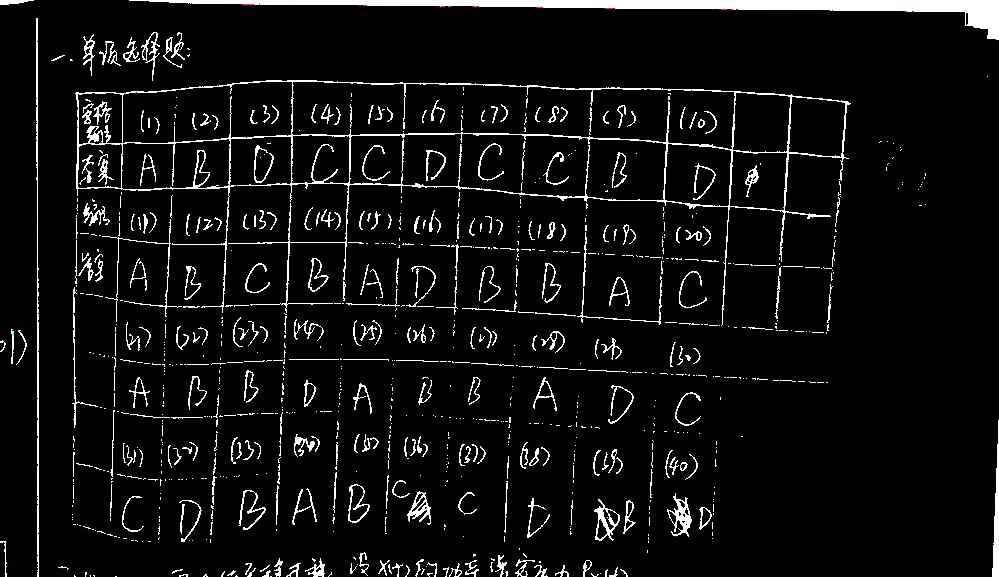 一、单项选择题:
空格编号 (1) (2) (3) (4) (5) (6) (7) (8) (9) (10)
答案 A B D C C D C C B D
编号 (11) (12) (13) (14) (15) (16) (17) (18) (19) (20)
答案 A B C B A D B B A C
(21) (22) (23) (24) (25) (26) (27) (28) (29) (30)
A B B D A B B A D C
(31) (32) (33) (34) (35) (36) (37) (38) (39) (40)
C D B A B C C D B D
的功率谱密度为